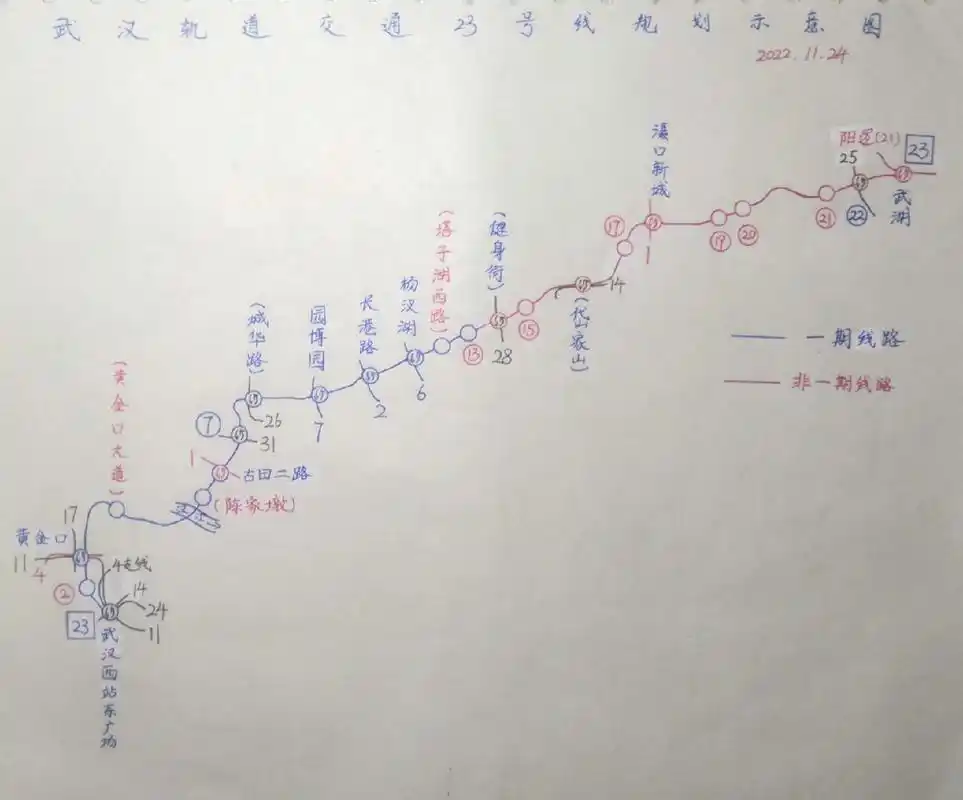 武汉轨道交通23号线规划示意图
2022.11.24
滠口新城
阳逻(21)
23
25
武湖
22
21
20
19
17
1
14
(岱家山)
15
(健身街)
28
13
(塔子湖西路)
杨汊湖
6
长港路
2
园博园
7
(城华路)
26
7
31
1
古田二路
(陈家墩)
汉江
(黄金口大道)
17
黄金口
11
4
2
4支线
14
24
11
23
武汉西站东广场
一期线路
非一期线路